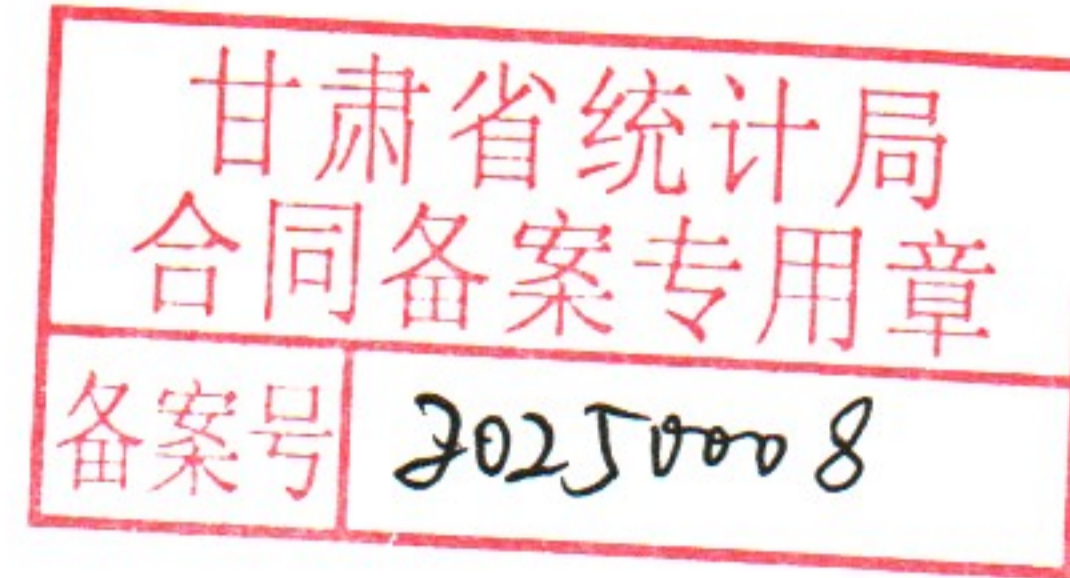 甘肃省统计局
合同备案专用章
备案号 20250008